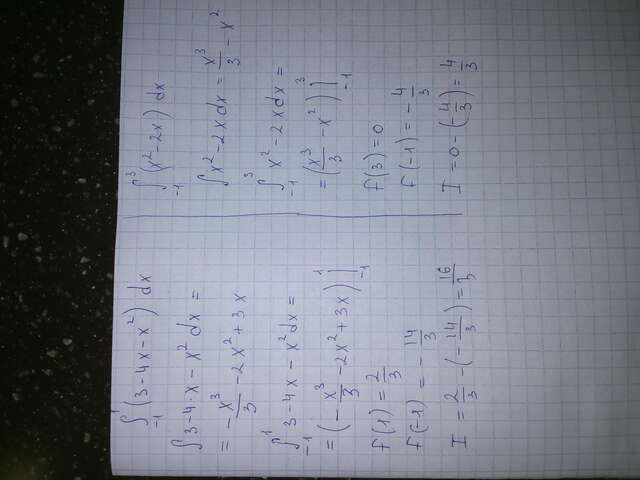 ∫₋₁¹ (3-4x-x²) dx
∫ 3-4·x-x² dx =
= -x³/3 - 2x² + 3x
∫₋₁¹ 3-4x-x² dx =
= (-x³/3 - 2x² + 3x) |₋₁¹
f(1) = 2/3
f(-1) = -14/3
I = 2/3 - (-14/3) = 16/3
∫₋₁³ (x²-2x) dx
∫ x²-2x dx = x³/3 - x²
∫₋₁³ x²-2x dx =
= (x³/3 - x²) |₋₁³
f(3) = 0
f(-1) = -4/3
I = 0 - (-4/3) = 4/3